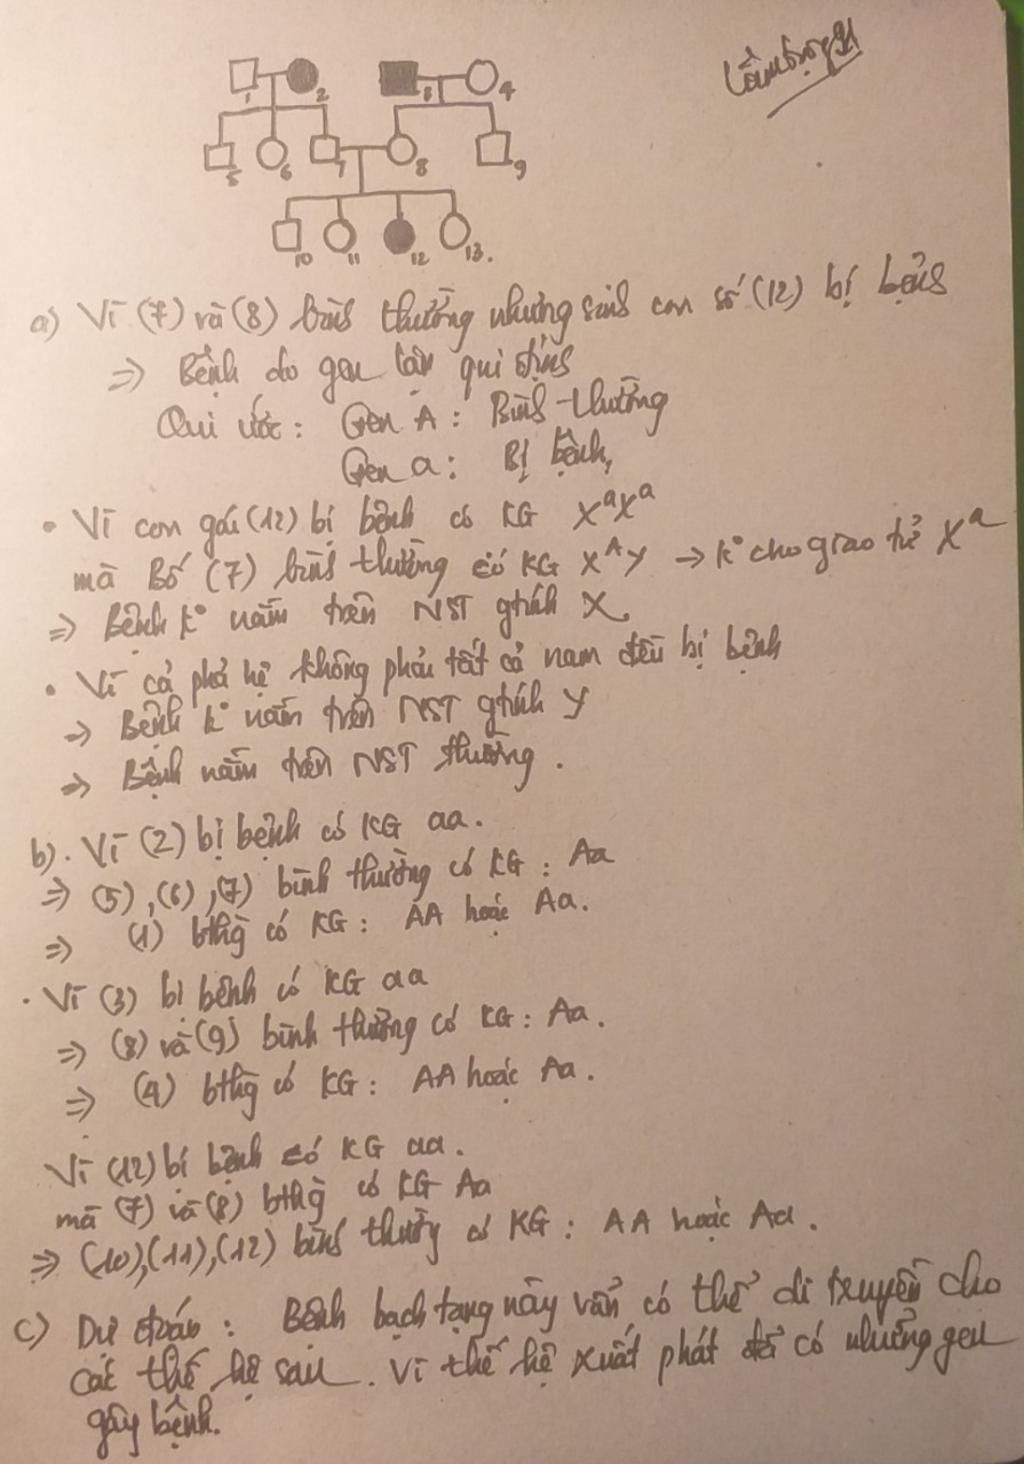 1 2 3 4
5 6 7 8 9
10 11 12 13.
a) Vì (7) và (8) bình thường nhưng sinh con số (12) bị bệnh
=> Bệnh do gen lặn qui định
Qui ước: Gen A: Bình thường
Gen a: Bị bệnh,
• Vì con gái (12) bị bệnh có KG XᵃXᵃ
mà Bố (7) bình thường có KG XᴬY → k° cho giao tử Xᵃ
=> Bệnh k° nằm trên NST gtính X
• Vì cả phả hệ không phải tất cả nam đều bị bệnh
=> Bệnh k° nằm trên NST gtính Y
=> Bệnh nằm trên NST thường.
b). Vì (2) bị bệnh có KG aa.
=> (5), (6), (7) bình thường có KG: Aa
=> (1) bthg̀ có KG: AA hoặc Aa.
. Vì (3) bị bệnh có KG aa
=> (8) và (9) bình thường có KG: Aa.
=> (4) bthg̀ có KG: AA hoặc Aa.
Vì (12) bị bệnh có KG aa.
mà (7) và (8) bthg̀ có KG Aa
=> (10), (11), (12) bình thường có KG: AA hoặc Aa.
c) Dự đoán: Bệnh bạch tạng này vẫn có thể di truyền cho
các thế hệ sau. Vì thế hệ xuất phát đã có những gen
gây bệnh.